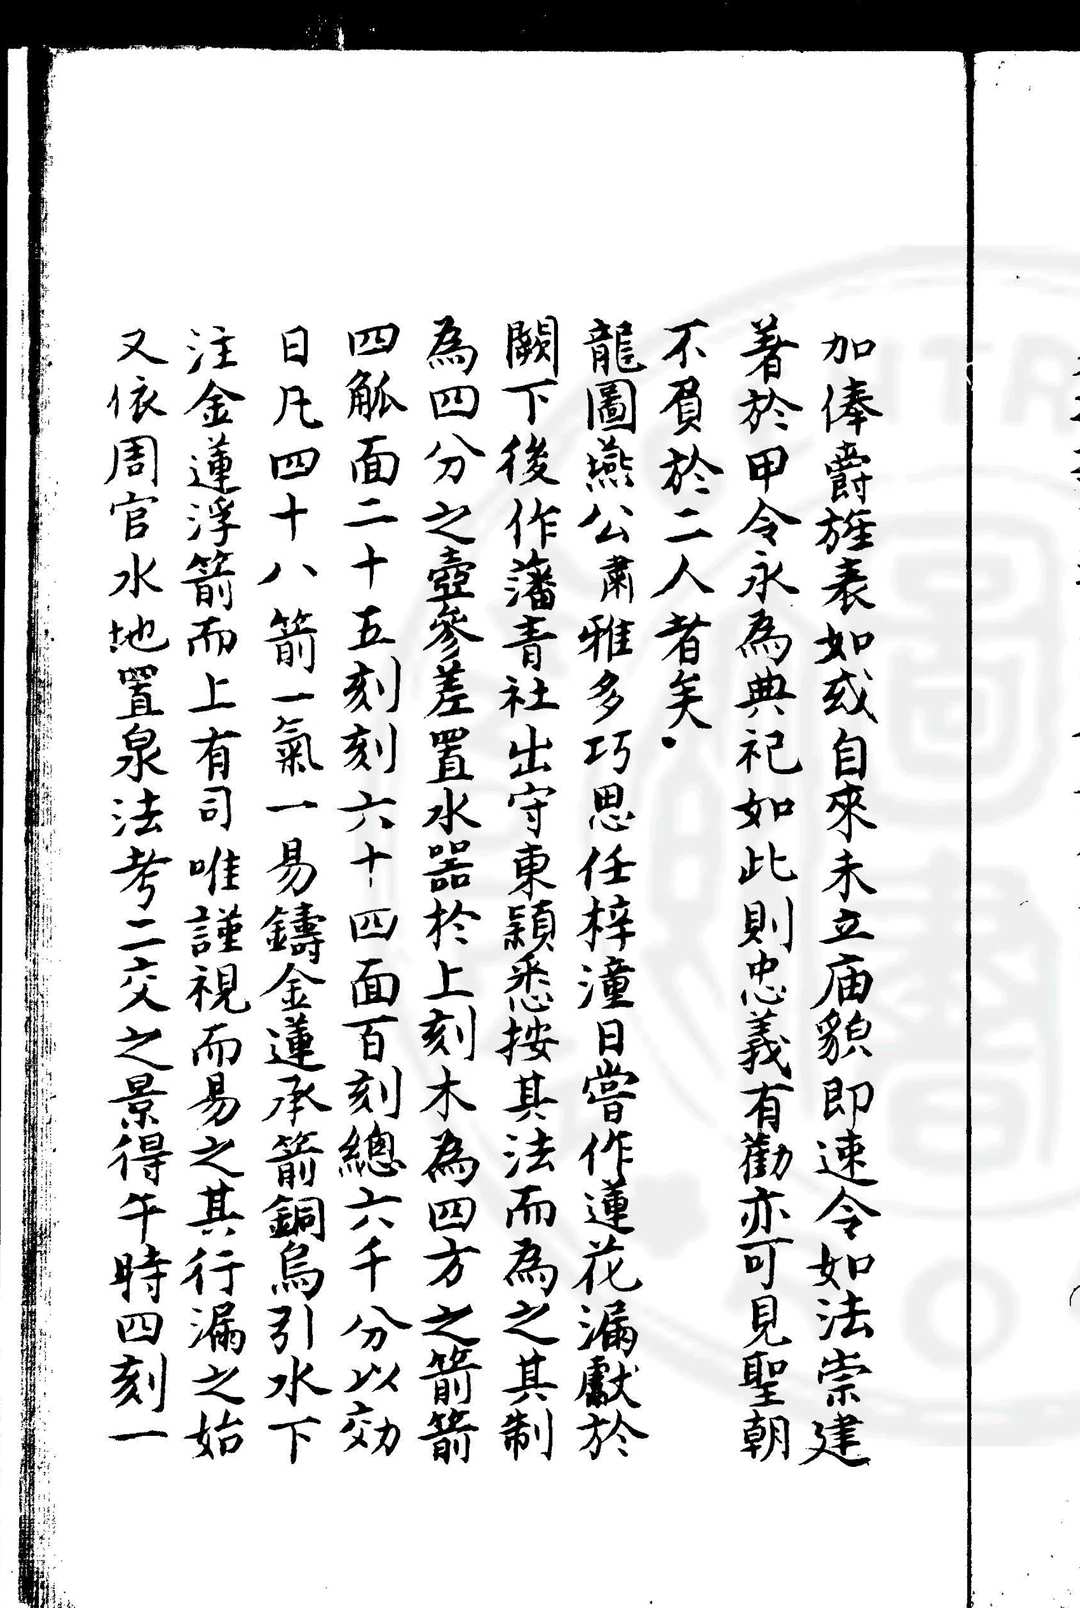 加俸爵旌表如或自來未立庙貌即速令如法崇建
著於甲令永為典祀如此則忠義有勸亦可見聖朝
不負於二人者矣
龍圖燕公肅雅多巧思任梓潼日嘗作蓮花漏獻於
闕下後作藩青社出守東潁悉按其法而為之其制
為四分之壺參差置水器於上刻木為四方之箭箭
四觚面二十五刻刻六十四面百刻總六千分以効
日凡四十八箭一氣一易鑄金蓮承箭銅烏引水下
注金蓮浮箭而上有司唯謹視而易之其行漏之始
又依周官水地置泉法考二交之景得午時四刻一